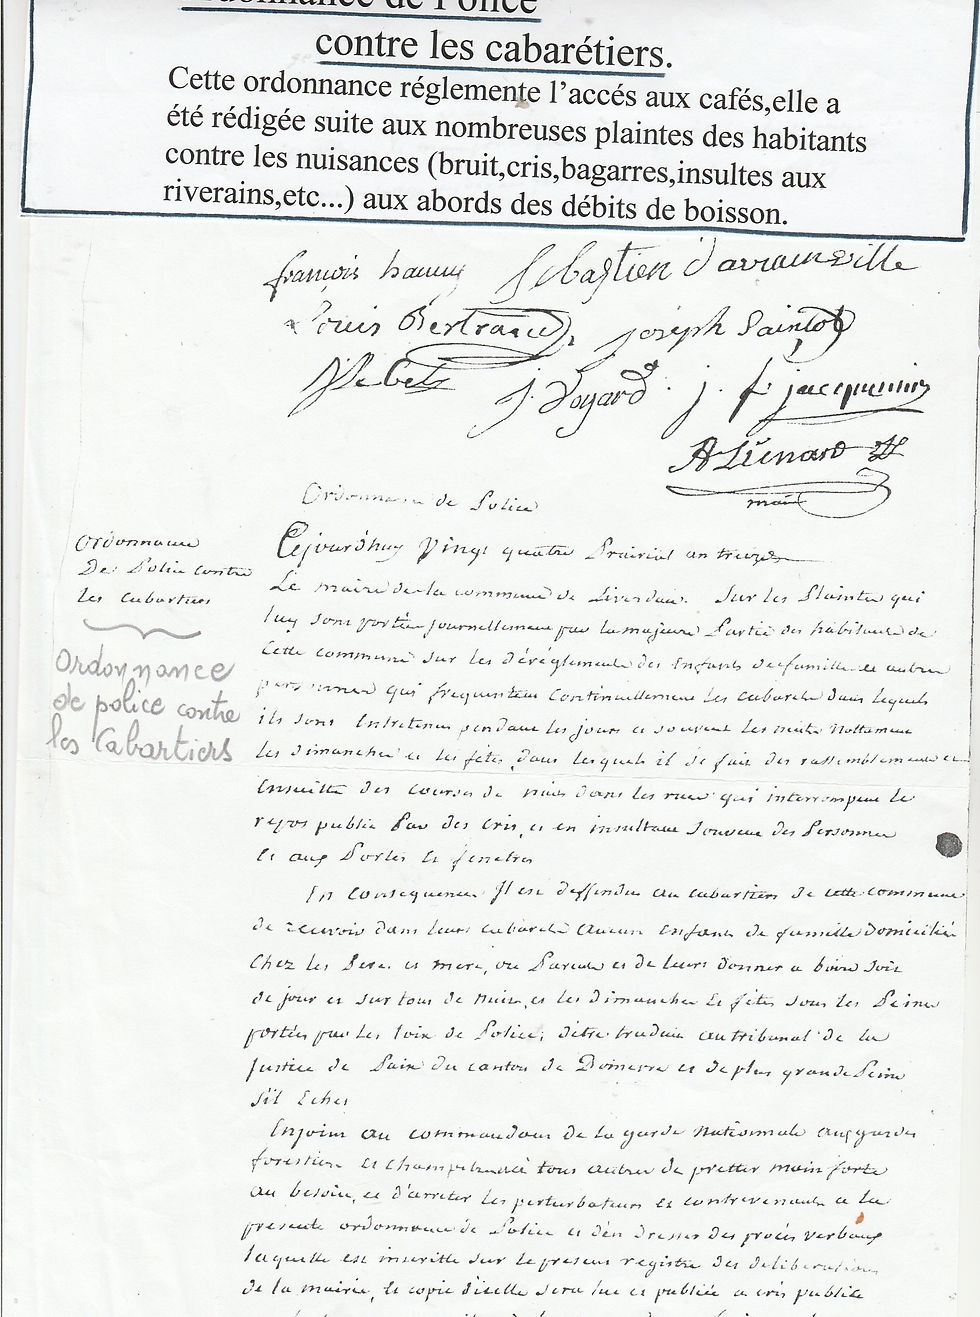 Ordonnance de Police
contre les cabarétiers.
Cette ordonnance réglemente l'accés aux cafés,elle a
été rédigée suite aux nombreuses plaintes des habitants
contre les nuisances (bruit,cris,bagarres,insultes aux
riverains,etc...) aux abords des débits de boisson.
françois hanny Sebastien davrainville
Louis Bertrand joseph Saintot
j. Doyard j. f. jacquemin
A Liénard
maire
Ordonnance de Police
Ordonnance
De Police contre
les cabartiers
Ordonnance
de police contre
les Cabartiers
Cejourd'huy Vingt quatre Prairial an treize
Le maire de la commune de Liverdun. Sur les Plainte qui
luy sont portée journellement par la majeure Partie des habitants de
Cette commune sur les déréglements des Enfants de famille et autres
personnes qui frequentent Continuellement les cabarets dans lequels
ils sont Entretenus pendant les jours et souvent les nuits Nottament
les dimanches et les fêtes, dans lesquels il se fait des rassemblements et
Ensuitte des courses de nuit dans les rues qui interrompent le
repos public Par des cris, et en insultant Souvent des Personnes
Et aux Portes et fenetres
En Consequence Il est deffendu au cabartiers de cette commune
de recevoir dans leurs cabarets aucun Enfants de famille domiciliés
Chez les Peres et mere, ou Parents et de leurs donner a boire Soit
de jour et sur tous de Nuit, et les dimanches et fêtes sous les Peines
portées par les loix de Police, d'être traduit au tribunal de la
Justice de Paix du canton de Domevre et de plus grande Peine
s'il Echet
Enjoint au commandant de la garde Nationale aux gardes
forestier et champetre et à tous autres de pretter main forte
au besoin, et d'arreter les perturbateurs et contrevenants a la
presente ordonnance de Police et d'en dresser des procés verbaux
laquelle est inscritte sur le present registre des deliberations
de la mairie, et copie d'icelle sera lue et publiée a cris publics